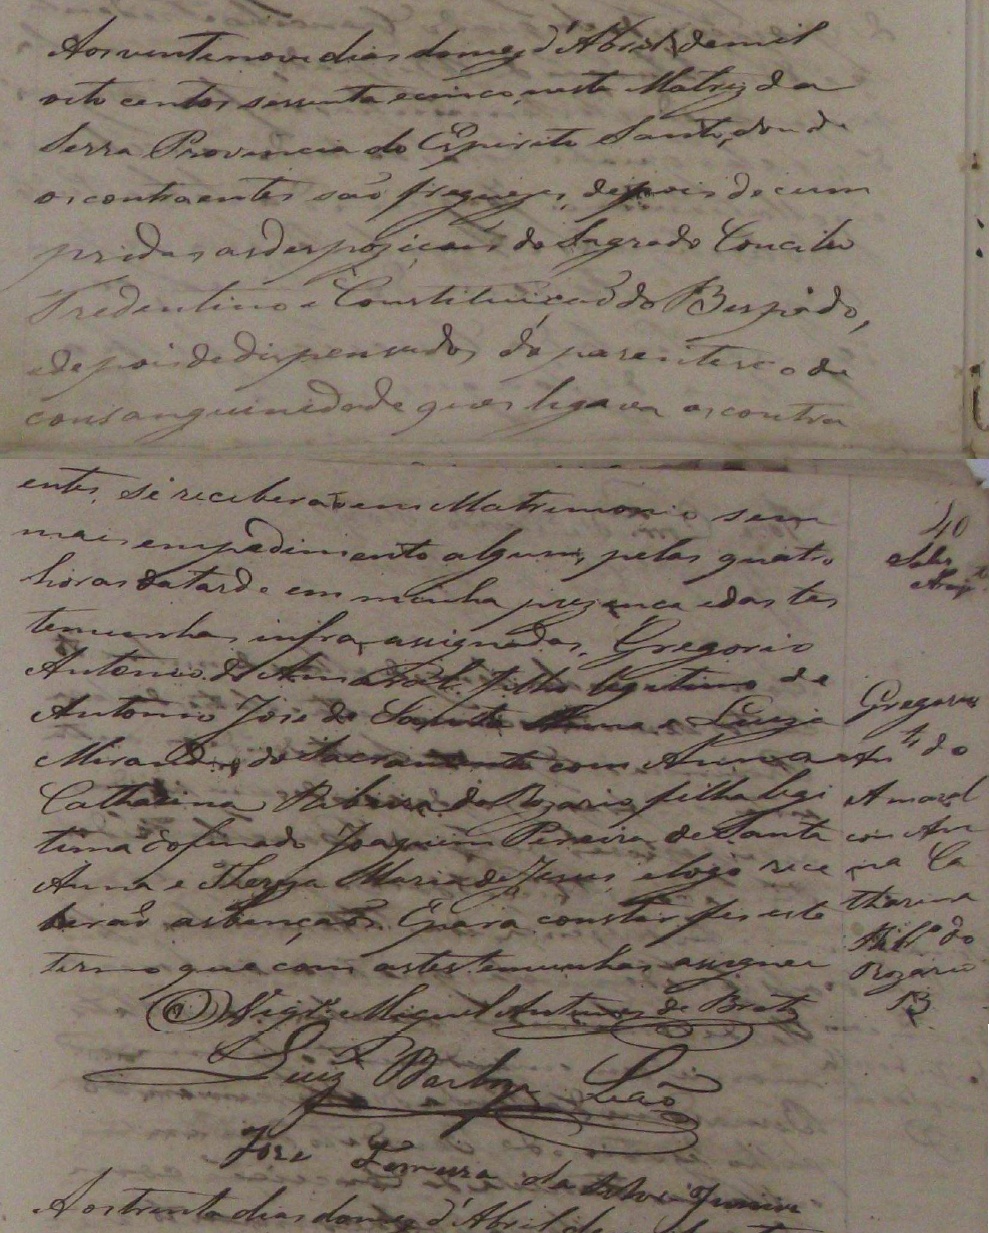 Aos vinte nove dias do mez d'Abril de mil
oito centos, sessenta e cinco, nesta Matriz da
Serra Provincia do Espirito Santo, donde
os contraentes são freguezes, depois de cum
pridas as desposições do Sagrado Concilio
Tredentino e Constituição do Bispado,
e depois de dispensados do parentesco de
consanguinedade que os ligava os contra
entes, se receberão em Matrimonio sem
mais empedimento algum, pelas quatro
horas da tarde em minha prezença e das tes
temunhas infra assignadas, Gregorio
Antonio do Amaral filho legitimo de
Antonio Jose de Santa Anna e Luiza
Miranda do Sacramento com Anna
Catharina Ribeira do Rozario filha legi
tima do finado Joaquim Pereira de Santa
Anna e Thereza Maria de Jesus, e logo rece
berão as bençãos. E para constar fiz este
termo que com as testemunhas assignei
O Vigr.º Miguel Antunes de Brito
Luiz Barboza Leão
Jose da Silva Junior
Aos trinta dias do mez d'Abril de
40
Gregorio
Ant.º do
Amaral
com An
na Ca
tharina
Rib.ª do
Rozario
13